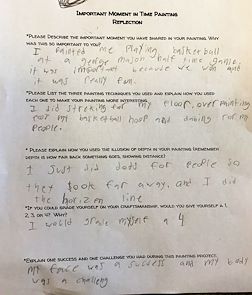 IMPORTANT MOMENT IN TIME PAINTING
REFLECTION
*PLEASE DESCRIBE THE IMPORTANT MOMENT YOU HAVE SHARED IN YOUR PAINTING. WHY
WAS THIS SO IMPORTANT TO YOU?
I painted me Playing basketball
at a george mason half time game.
it was important because we won and
it was really fun.
*PLEASE LIST THE THREE PAINTING TECHNIQUES YOU USED AND EXPLAIN HOW YOU
USED EACH ONE TO MAKE YOUR PAINTING MORE INTERESTING.
I did for my floor, over painting
for my basketball hoop and dabing for my
people.
*PLEASE EXPLAIN HOW YOU USED THE ILLUSION OF DEPTH IN YOUR PAINTING (REMEMBER
DEPTH IS HOW FAR BACK SOMETHING GOES, SHOWING DISTANCE)
I Just did dots for people so
they look far away, and I did
the horizen line
*IF YOU COULD GRADE YOURSELF ON YOUR CRAFTSMANSHIP, WOULD YOU GIVE YOURSELF A 1,
2, 3, OR 4? WHY?
I would grade myself a 4
*EXPLAIN ONE SUCCESS AND ONE CHALLENGE YOU HAD DURING THIS PAINTING PROJECT.
my face was a success and my body
was a challeng